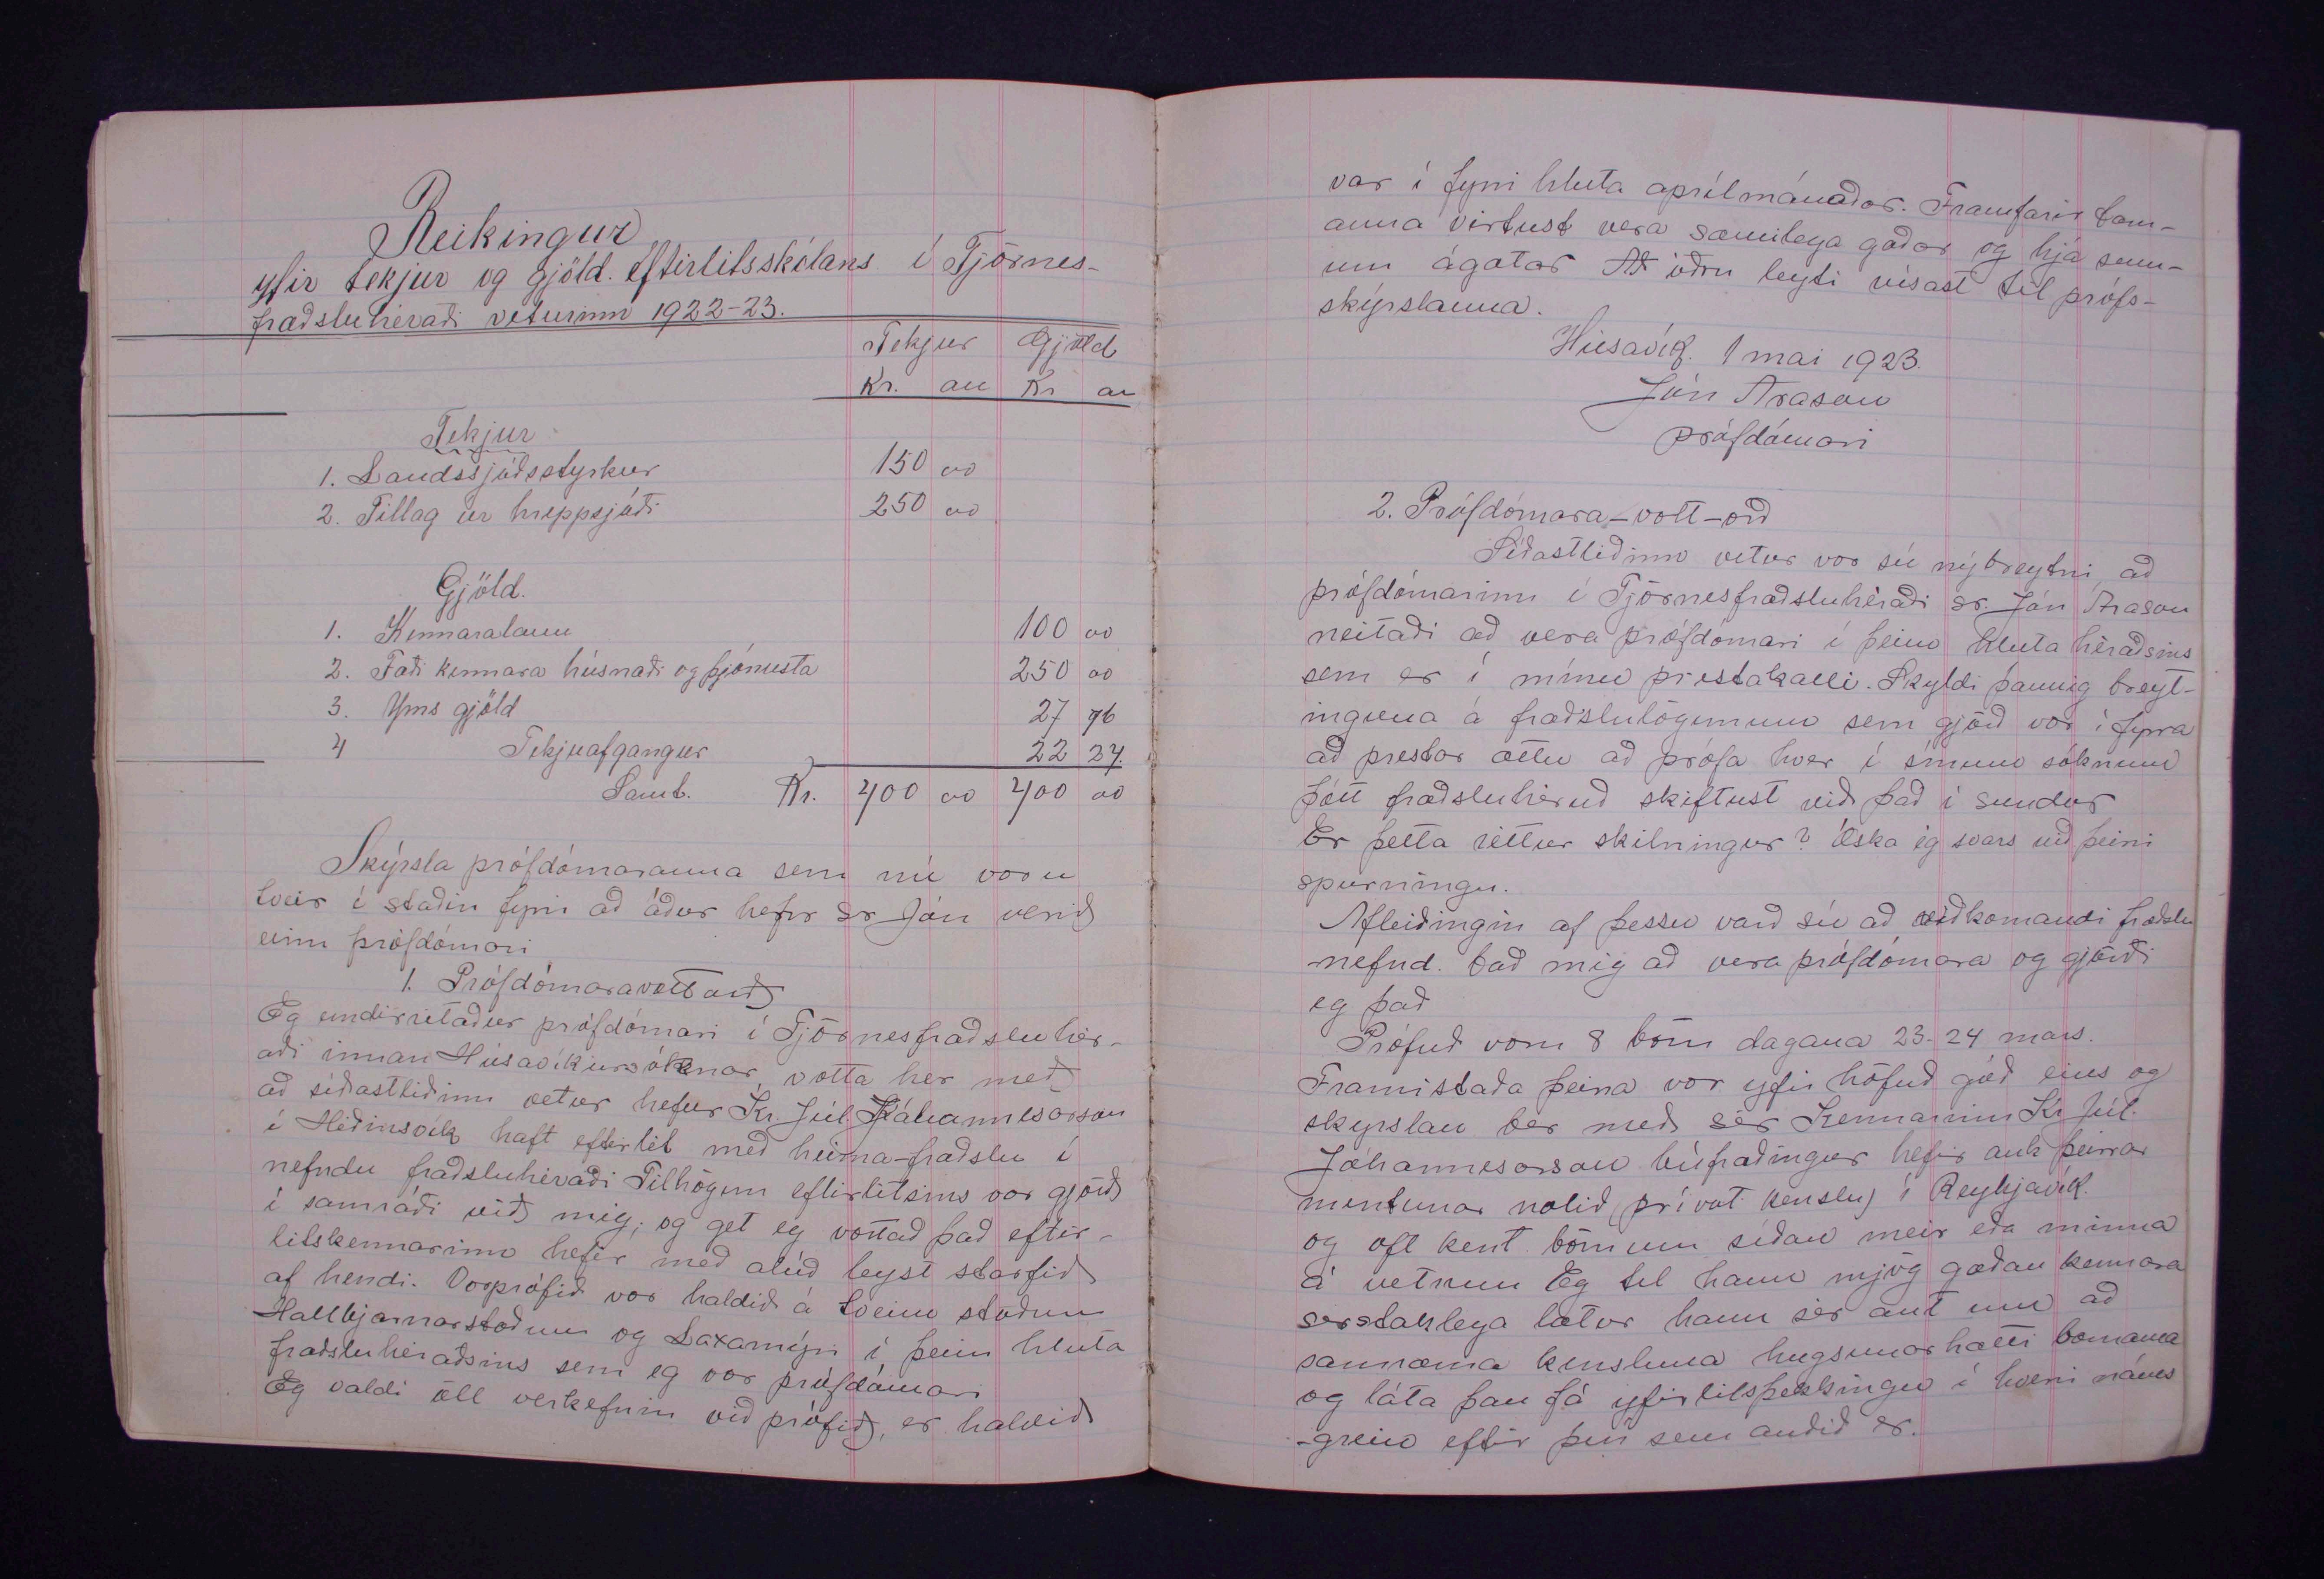 Reikingur
yfir tekjur og gjöld. Eftirlitsskólans í Tjörnes-
fræðsluhéraði veturinn 1922-23.
Tekjur Gjöld
Kr. au Kr au
Tekjur
1. Landssjóðsstyrkur 150 oo
2. Tillag úr hreppsjóði 250 oo
Gjöld.
1. Kennaralaun 100 oo
2. Fæði kennara húsnæði og þjónusta 250 oo
3. Yms gjöld 27 76
4 Tekjuafgangur 22 24.
Samt. Kr. 400 oo 400 oo
Skýrsla prófdómaranna sem nú voru
tveir í staðin fyrir að áður hefir sr Jón verið
einn prófdómari
1. Prófdómaravottorð
Eg undirritaður prófdómari í Tjörnesfræðsluhér-
aði innan Húsavíkursóknar, votta hér með
að síðastliðinn vetur hefur Kr. Júl. Jóhannesarson
í Héðinsvík haft eftirlit með heima-fræðslu í
nefndu fræðsluhéraði Tilhögun eftirlitsins var gjörð
í samráði við mig; og get eg vottað það eftir-
litskennarinn hefir með alúð leyst starfið
af hendi. Vorprófið var haldið á tveim stöðum
Hallbjarnarstöðum og Laxamýri í þeim hluta
fræðsluhéraðsins sem eg var prófdómari
Eg valdi öll verkefnin við prófið, er haldið
var í fyrri hluta aprílmánaðar. Framfarir barn-
anna virtust vera sæmilega góðar og hjá sum-
um ágætar Að öðru leyti vísast til prófs-
skýrslanna.
Húsavík. 1 mai 1923.
Jón Arason
prófdómari
2. Prófdómara-vott-orð
Síðastliðinn vetur var sú nýbreytni, að
prófdómarinn í Tjörnesfræðsluhéraði sr. Jón Arason
neitaði að vera prófdómari í þeim hluta héraðsins
sem er í mínu prestakalli. Skyldi þannig breyt-
inguna á fræðslulögunum sem gjörð var í fyrra
að prestar ættu að prófa hver í sínum sóknum
þótt fræðsluhéruð skiftust við það í sundur
Er þetta réttur skilningur? Óska ég svars uið þeirri
spurningu.
Afleiðingin af þessu varð sú að viðkomandi fræðslu
-nefnd. bað mig að vera prófdómara og gjörði
eg það
Prófuð voru 8 börn dagana 23-24 mars.
Framistaða þeirra var yfir höfuð góð eins og
skyrslan ber með sér Kennarinn Kr Júl.
Jóhannesarson búfræðingur hefir auk þeirrar
mentunar notið (prívat kenslu) í Reykjavík.
og oft kent börnum síðan meir eða minna
á vetrum Eg tel hann mjög góðan kennara
sérstaklega lætur hann sér ant um að
samræma kensluna hugsunarhætti barnanna
og láta þau fá yfirlitsþekkingu í hverri náms
-grein eftir því sem auðið er.